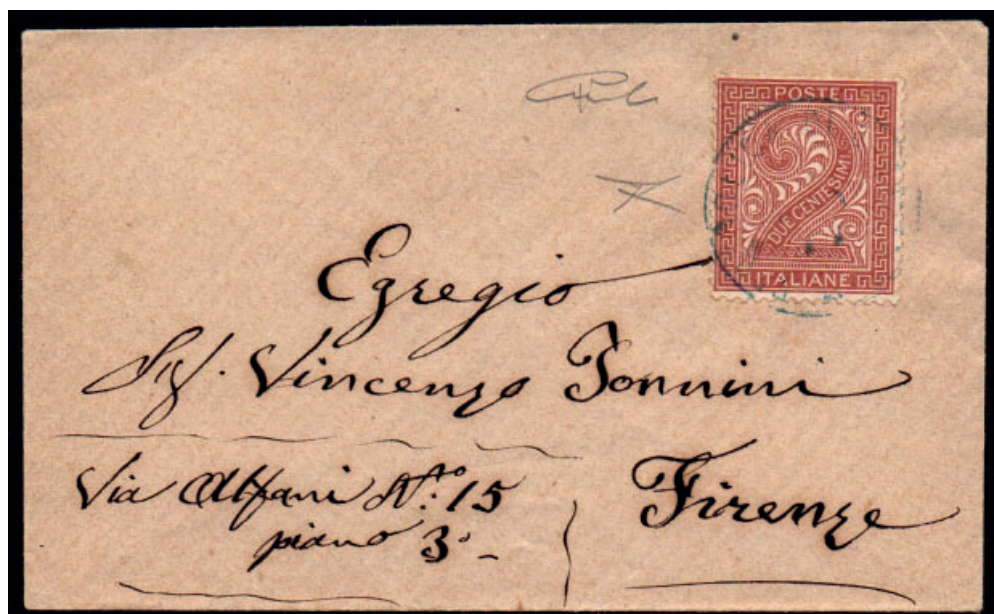 POSTE
2
DUE CENTESIMI
ITALIANE
Egregio
Sig. Vincenzo Tonnini
Via Alfani N.o 15
piano 3.o -
Firenze